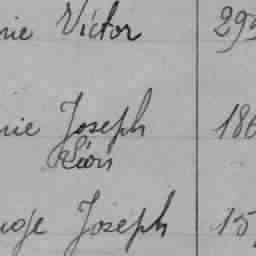 nie Victor 29
nie Joseph 186
Léon
uge Joseph 15